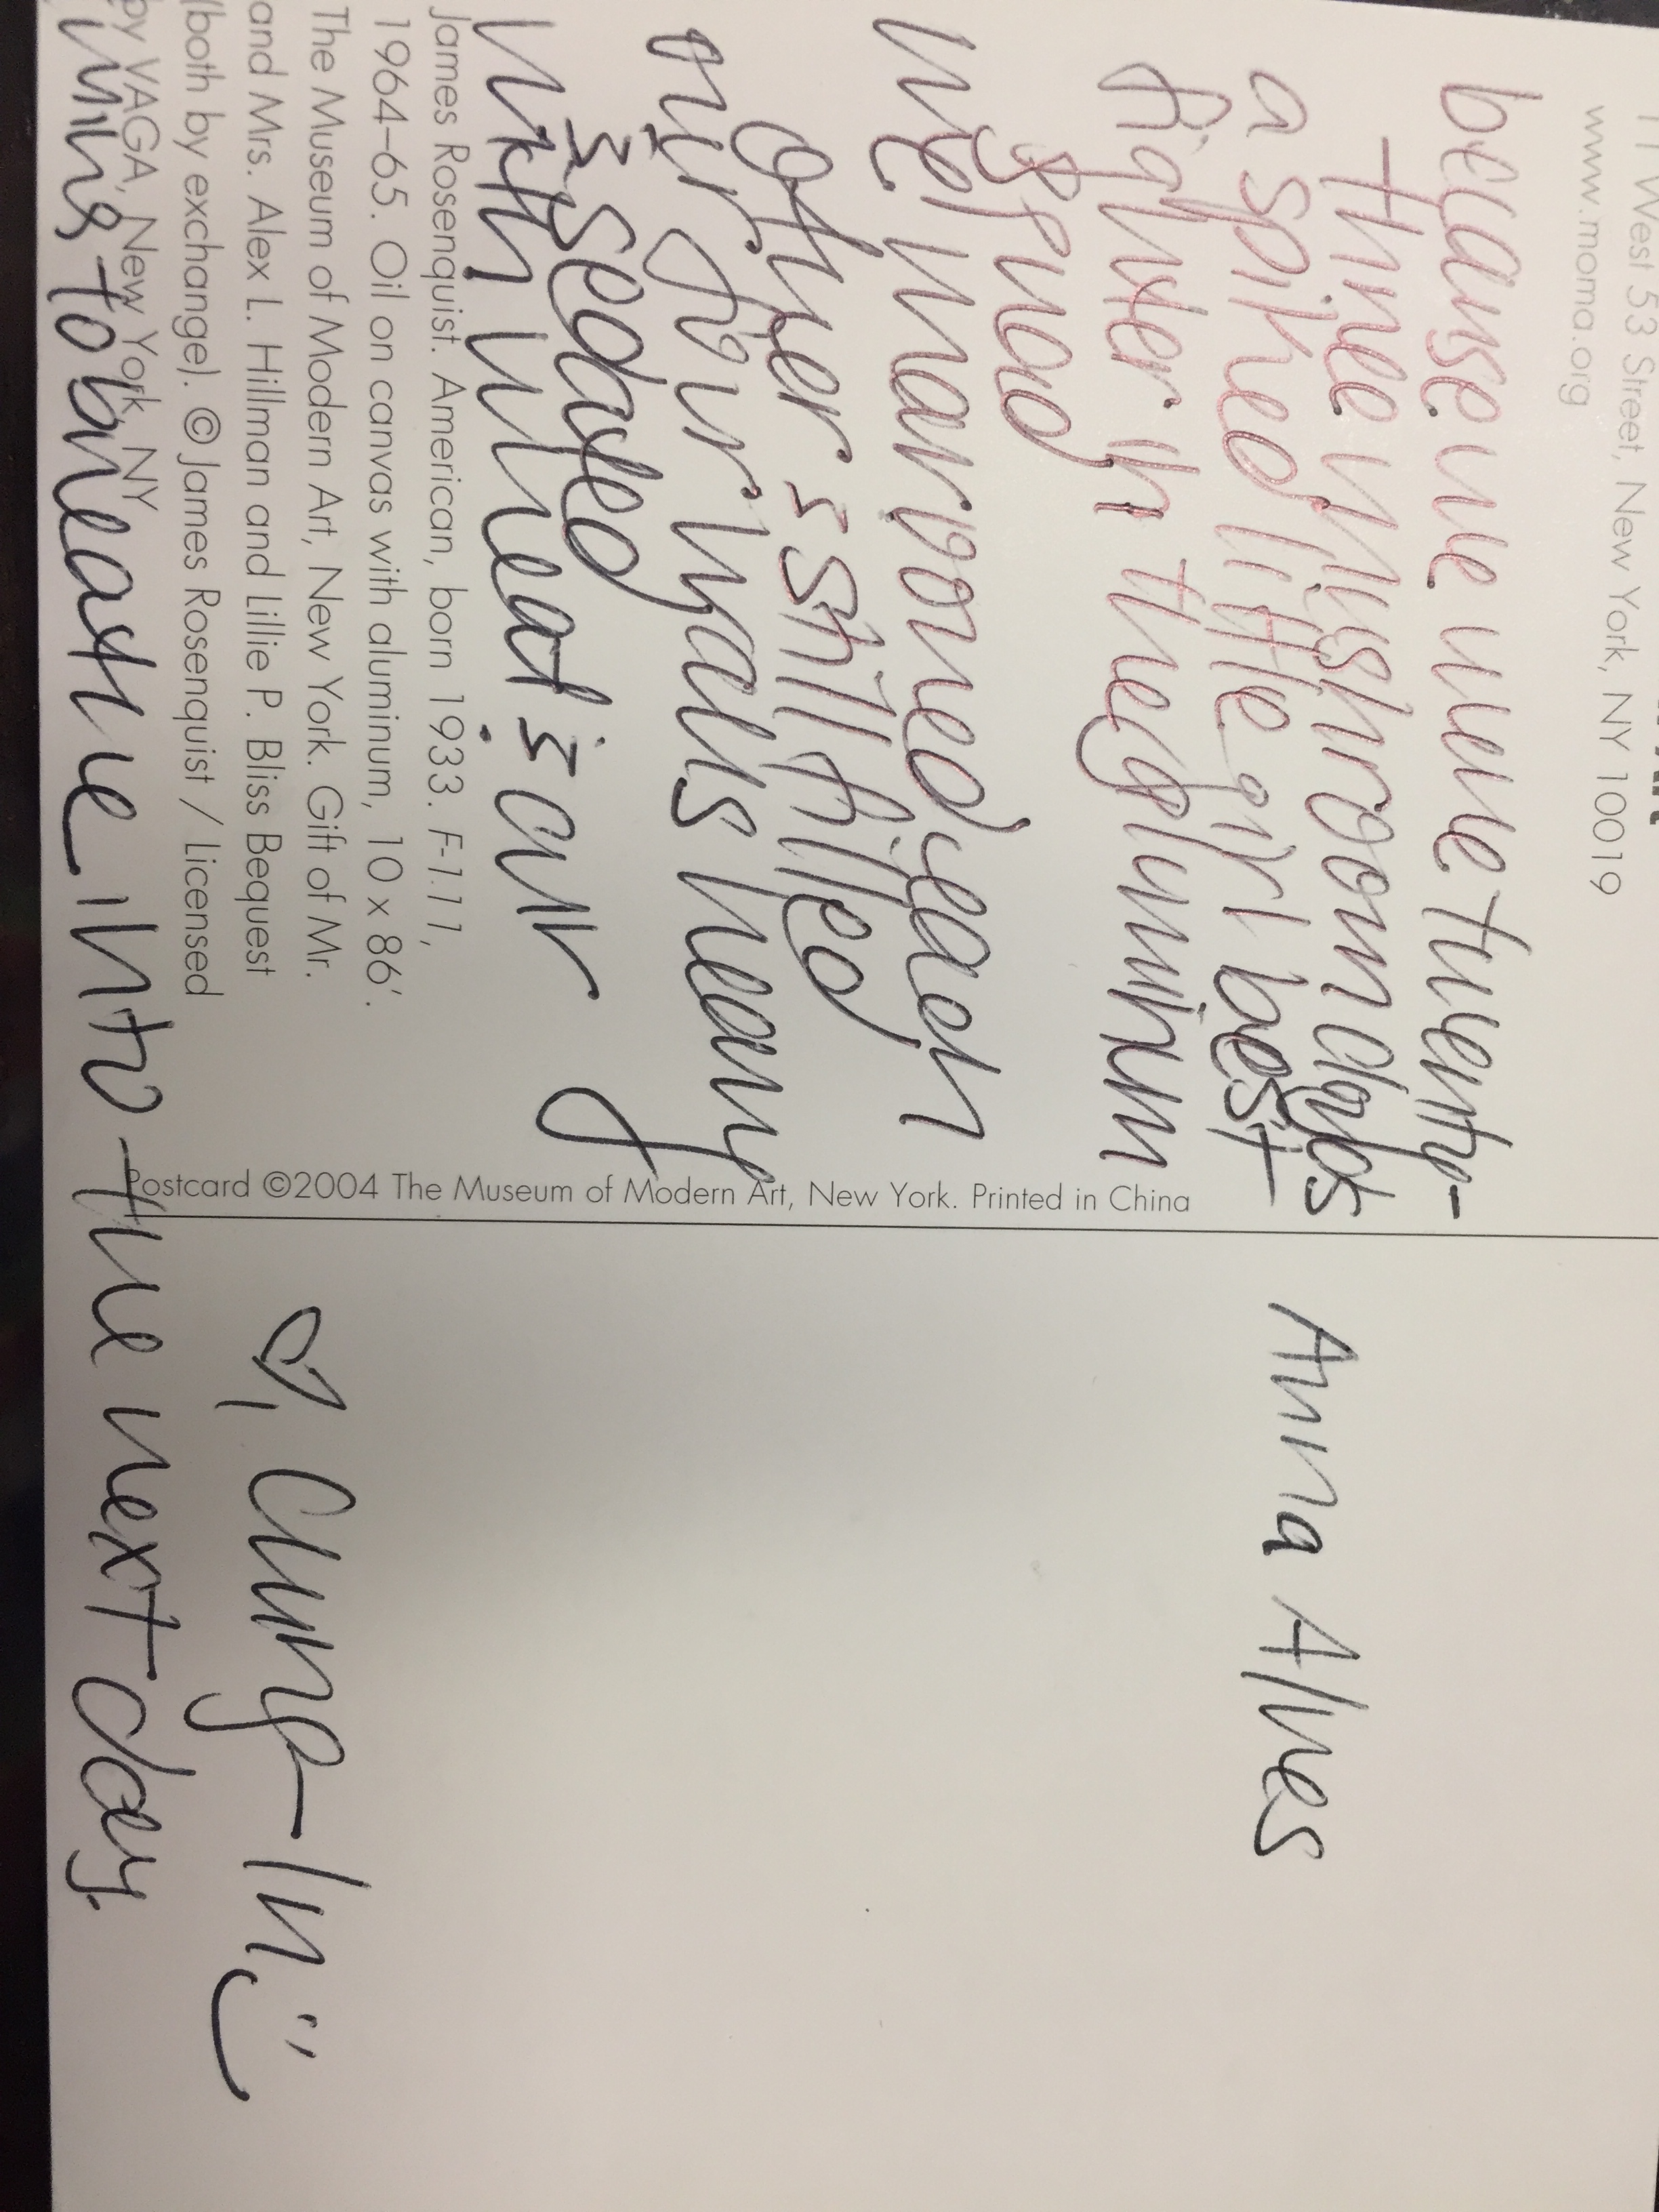 11 West 53 Street, New York, NY 10019
www.moma.org
because we were twenty-
three mushroom
a spiked little girl best
fighter in the
we each
other still filled
air for heavy
sedated
with what is our
James Rosenquist. American, born 1933. F-111,
1964–65. Oil on canvas with aluminum, 10 x 86'.
The Museum of Modern Art, New York. Gift of Mr.
and Mrs. Alex L. Hillman and Lillie P. Bliss Bequest
(both by exchange). © James Rosenquist / Licensed
by VAGA, New York, NY
to breathe into the next day.
Postcard ©2004 The Museum of Modern Art, New York. Printed in China
Anna Alves
♡, Chung-In